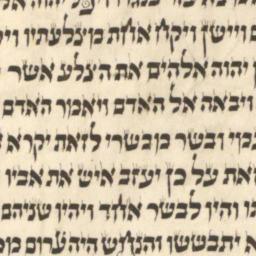 כנגדו ויפל יהוה
ויישן ויקח אחת מצלעתיו
יהוה אלהים את הצלע אשר
ויבאה אל האדם ויאמר האדם
ובשר מבשרי לזאת יקרא
זאת על כן יעזב איש את אביו
והיו לבשר אחד ויהיו שניהם
יתבששו והנחש היה ערום